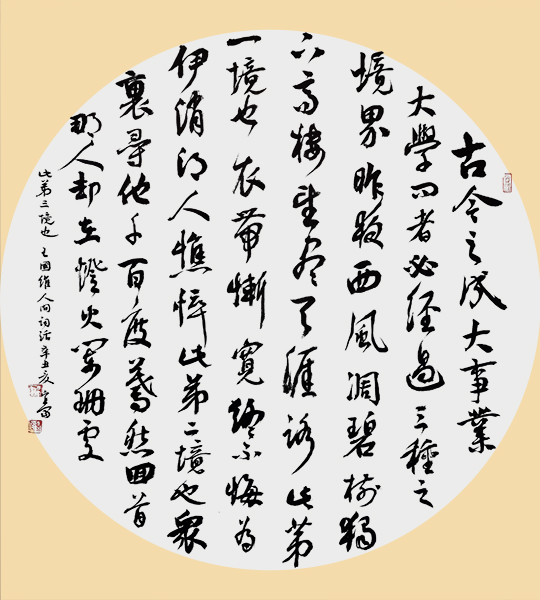 古今之成大事業
大學问者必經過三種之
境界昨夜西風凋碧樹獨
上高樓望尽天涯路此第
一境也衣帶漸寬終不悔為
伊消得人憔悴此第二境也眾
裏尋他千百度驀然回首
那人却在燈火闌珊處
此第三境也 王國維人间词话 辛丑夏